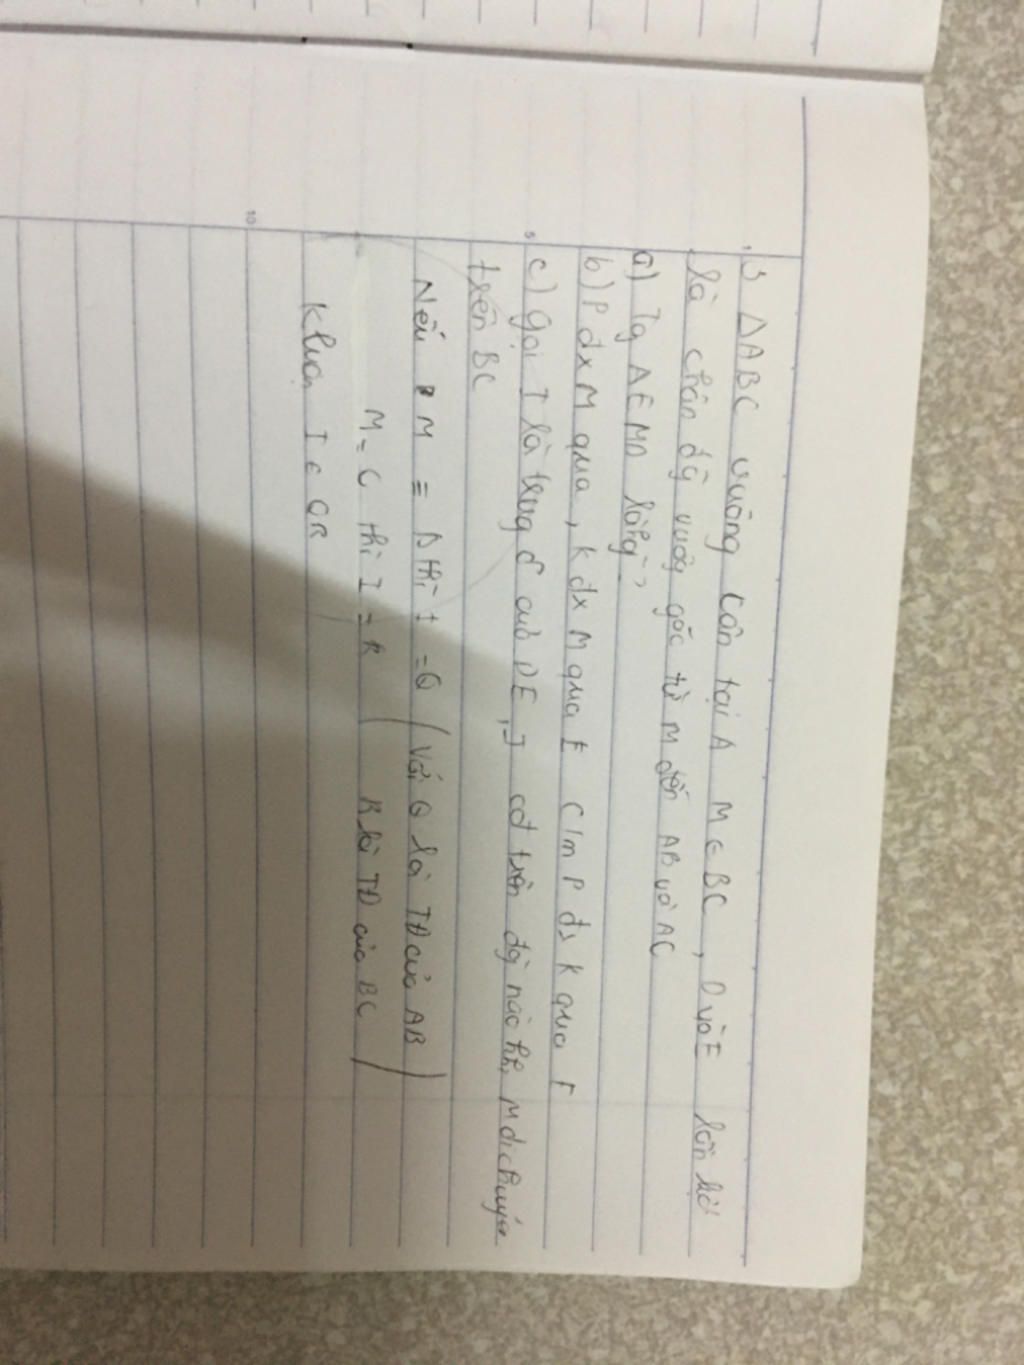 3 ΔABC vuông cân tại A M ∈ BC, D và E lần lượt
là chân đg vuông góc từ M đến AB và AC
a) Tg AEMD là hg ?
b) P đx M qua, K đx M qua E C/m P đx K qua
c) Gọi I là trung đ của DE, I cđ trên đg nào khi M di chuyển
trên BC
Nếu M = thì I = Q (Với Q là TĐ của AB)
M = C thì I = R ( R là TĐ của BC )
I ∈ QR
5
10